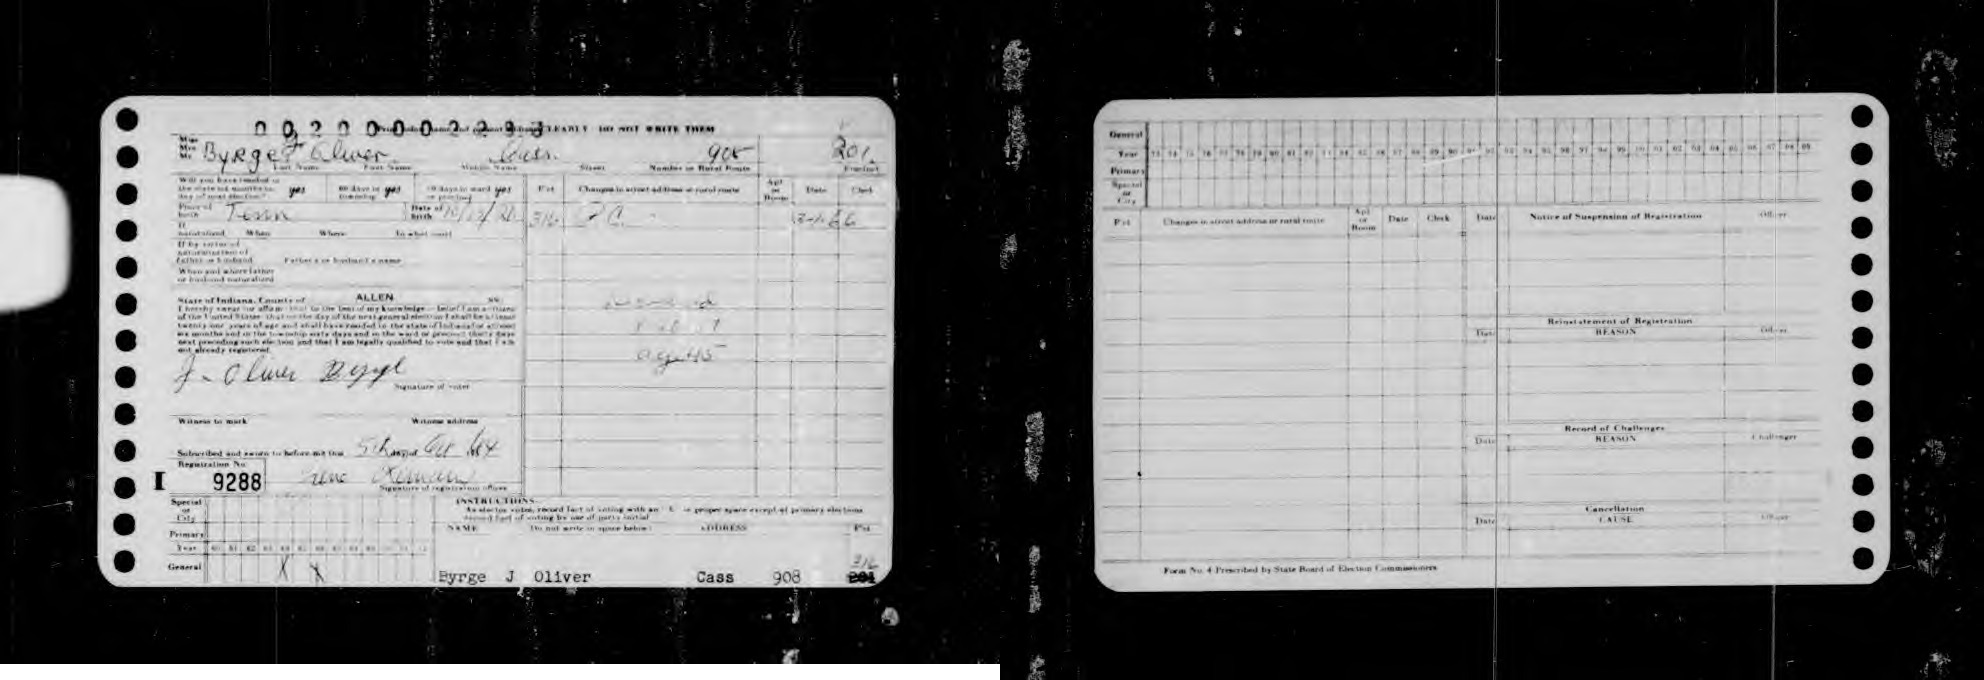 00200002293
CLEARLY DO NOT WRITE THEM
Miss
Mrs
Mr
Byrge J Oliver Cass 908 201
Last Name First Name Middle Name Street Number or Rural Route Precinct
Will you have resided in
the state six months to yes 60 days in yes 30 days in ward yes
day of next election? township or precinct
Place of birth Tenn Date of birth
If naturalized When Where In what court
If by virtue of
naturalization of
father or husband Father's or husband's name
When and where father
or husband naturalized
State of Indiana, County of ALLEN SS:
I hereby swear (or affirm) that to the best of my knowledge and belief I am a citizen
of the United States that on the day of the next general election I shall be at least
twenty-one years of age and shall have resided in the state of Indiana for at least
six months and in the township sixty days and in the ward or precinct thirty days
next preceding such election and that I am legally qualified to vote and that I am
not already registered.
J. Oliver Byrge
Signature of voter
Witness to mark Witness address
Subscribed and sworn to before me this 5th day of 64
Registration No.
I 9288
Signature of registration officer
Pct Changes in street address or rural route Apt or Room Date Clerk
316 P.C. 66
Special
or
City
Primary
Year 60 61 62 63 64 65 66 67 68 69 70 71 72
General X X
INSTRUCTIONS
As elector votes, record fact of voting with an X in proper space except at primary elections
record fact of voting by use of party initial
NAME Do not write in space below ADDRESS Pct
316
Byrge J Oliver Cass 908 201
General
Year 73 74 75 76 77 78 79 80 81 82 83 84 85 86 87 88 89 90 91 92 93 94 95 96 97 98 99 00 01 02 03 04 05 06 07 08 09
Primary
Special
or
City
Pct Changes in street address or rural route Apt or Room Date Clerk
Date Notice of Suspension of Registration Officer
Reinstatement of Registration
Date REASON Officer
Record of Challenges
Date REASON Challenger
Cancellation
Date CAUSE Officer
Form No. 4 Prescribed by State Board of Election Commissioners